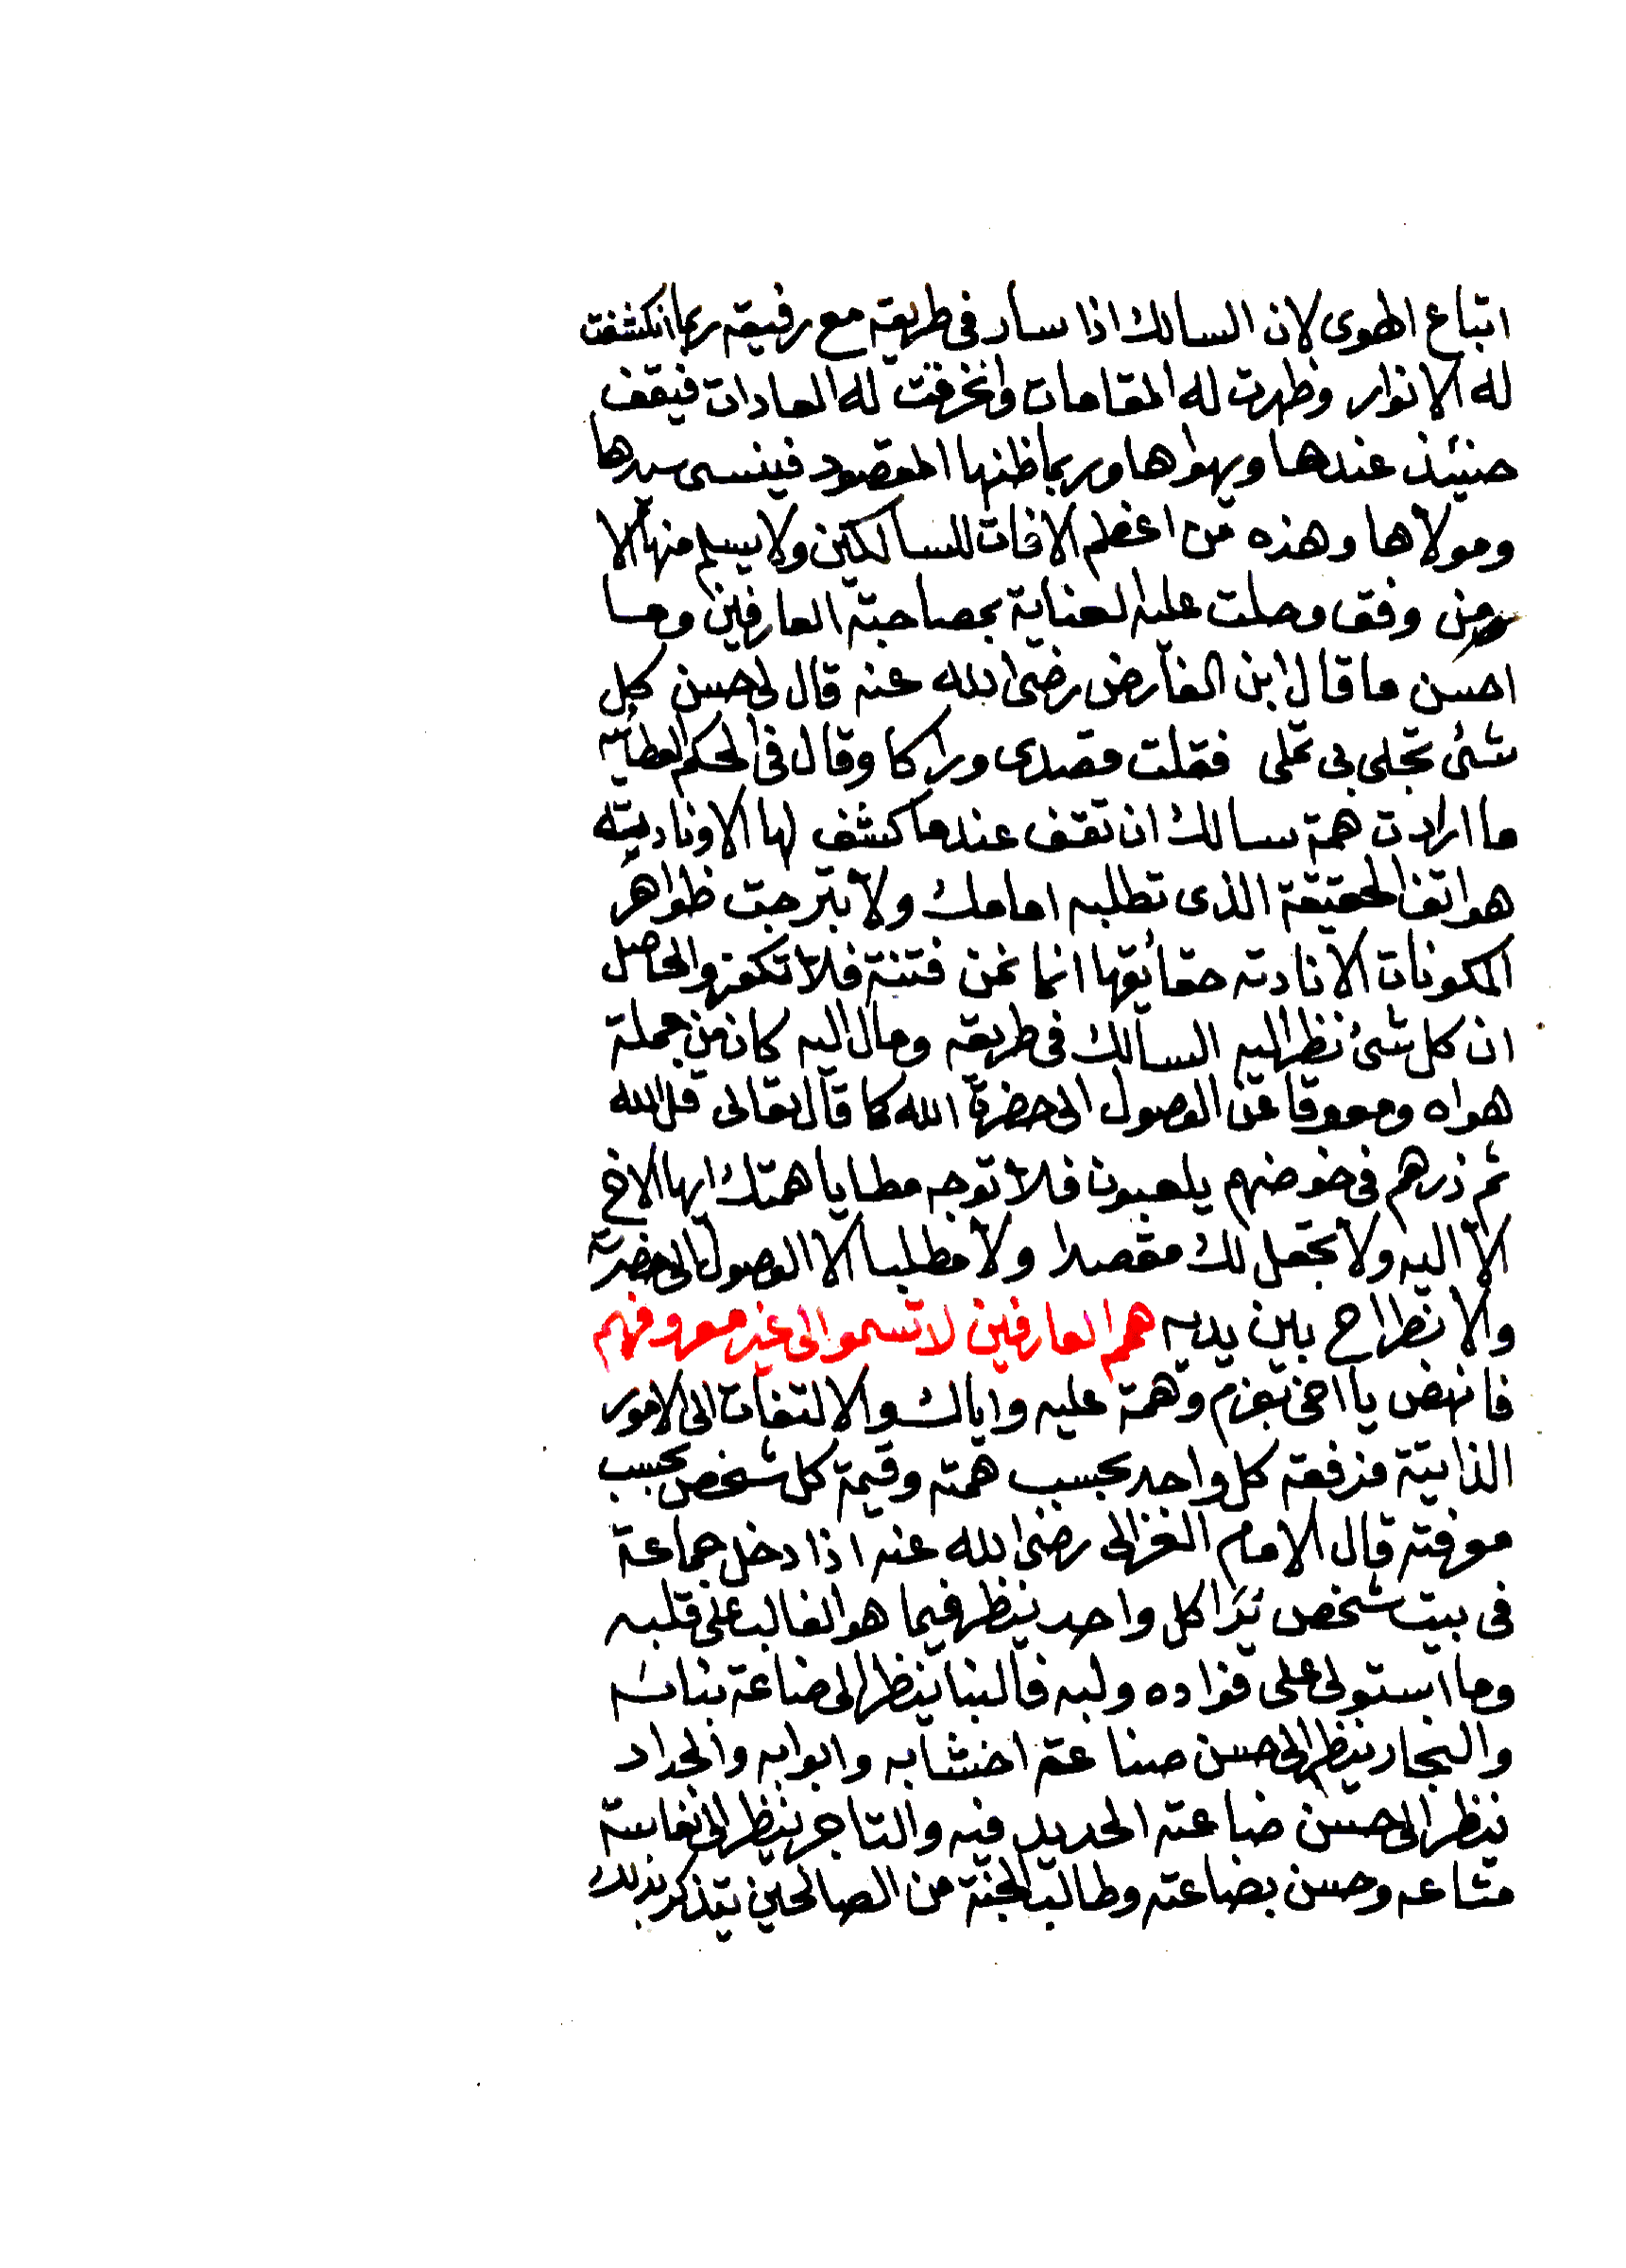 اتباع الهوى لان السالك اذا سار فى طريقه مع رفيقه ربما انكشفت
له الانوار وظهرت له المقامات وانخرقت له العادات فيقف
حنيئذ عندها ويهواها وربما ظنها المقصود فينسى سيدها
ومولاها وهذه من اعظم الافات للسالكين ولا يسلم منها الا
من وفق وحلت عليه العناية بمصاحبة العارفين وما
احسن ما قال ابن الفارض رضى الله عنه قال لى حسن كل
شئ تجلى بى تملى فقلت قصدى وراكا وقال فى الحكم العطائيه
ما ارادت همة سالك ان تقف عندما كشف لها الا ونادته
هواتف الحقيقة الذى تطلبه امامك ولا تبرجت ظواهر
المكونات الا نادته حقائقها انما نحن فتنة فلا تكفر والحاصل
ان كل شئ نظر اليه السالك فى طريقه ومال اليه كان من جملة
هواه ومعوقا عن الوصول الى حضرة الله كما قال تعالى قل الله
ثم ذرهم فى خوضهم يلعبون فلا توجه مطايا همتك ايها الاخ
الا اليه ولا تجعل لك مقصدا ولا مطلبا الا الوصول الى حضرته
والانطراح بين يديه همم العارفين لا تسموا الى غير معروفهم
فانهض يا اخى بعزم وهمة عليه واياك والالتفات الى الامور
الذاتية فرفعة كل واحد بحسب همته وقيمة كل شخص بحسب
معرفته قال الامام الغزالى رضى الله عنه اذا دخل جماعة
فى بيت شخص ترا كل واحد ينظر فيما هو الغالب على قلبه
وما استولى على فواده ولبه فالبنا ينظر الى صناعة بنائه
والنجار ينظر الى حسن صناعة اخشابه وابوابه والحداد
ينظر الى حسن صناعة الحديد فيه والتاجر ينظر الى نفاسة
متاعه وحسن بضاعته وطالب الجنة من الصالحين يتذكر بذلك